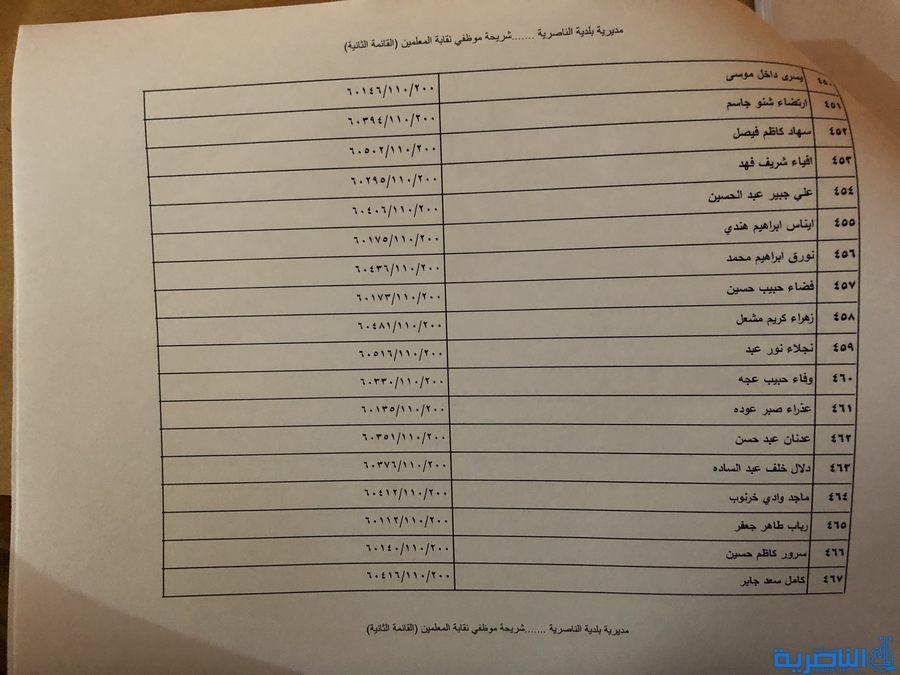 مديرية بلدية الناصرية .......شريحة موظفي نقابة المعلمين (القائمة الثانية)
٤٥٠ يسرى داخل موسى ٦٠١٤٦/١١٠/٢٠٠
٤٥١ ارتضاء شنو جاسم ٦٠٣٩٤/١١٠/٢٠٠
٤٥٢ سهاد كاظم فيصل ٦٠٥٠٢/١١٠/٢٠٠
٤٥٣ افياء شريف فهد ٦٠٢٩٥/١١٠/٢٠٠
٤٥٤ علي جبير عبد الحسين ٦٠٤٠٦/١١٠/٢٠٠
٤٥٥ ايناس ابراهيم هندي ٦٠١٧٥/١١٠/٢٠٠
٤٥٦ نورق ابراهيم محمد ٦٠٤٣٦/١١٠/٢٠٠
٤٥٧ فضاء حبيب حسين ٦٠١٧٣/١١٠/٢٠٠
٤٥٨ زهراء كريم مشعل ٦٠٤٨١/١١٠/٢٠٠
٤٥٩ نجلاء نور عبد ٦٠٥١٦/١١٠/٢٠٠
٤٦٠ وفاء حبيب عجه ٦٠٣٣٠/١١٠/٢٠٠
٤٦١ عذراء صبر عوده ٦٠١٣٥/١١٠/٢٠٠
٤٦٢ عدنان عبد حسن ٦٠٣٥١/١١٠/٢٠٠
٤٦٣ دلال خلف عبد الساده ٦٠٣٧٦/١١٠/٢٠٠
٤٦٤ ماجد وادي خرنوب ٦٠٤١٢/١١٠/٢٠٠
٤٦٥ رباب طاهر جعفر ٦٠١١٢/١١٠/٢٠٠
٤٦٦ سرور كاظم حسين ٦٠١٤٠/١١٠/٢٠٠
٤٦٧ كامل سعد جابر ٦٠٤١٦/١١٠/٢٠٠
مديرية بلدية الناصرية .......شريحة موظفي نقابة المعلمين (القائمة الثانية)
الناصرية